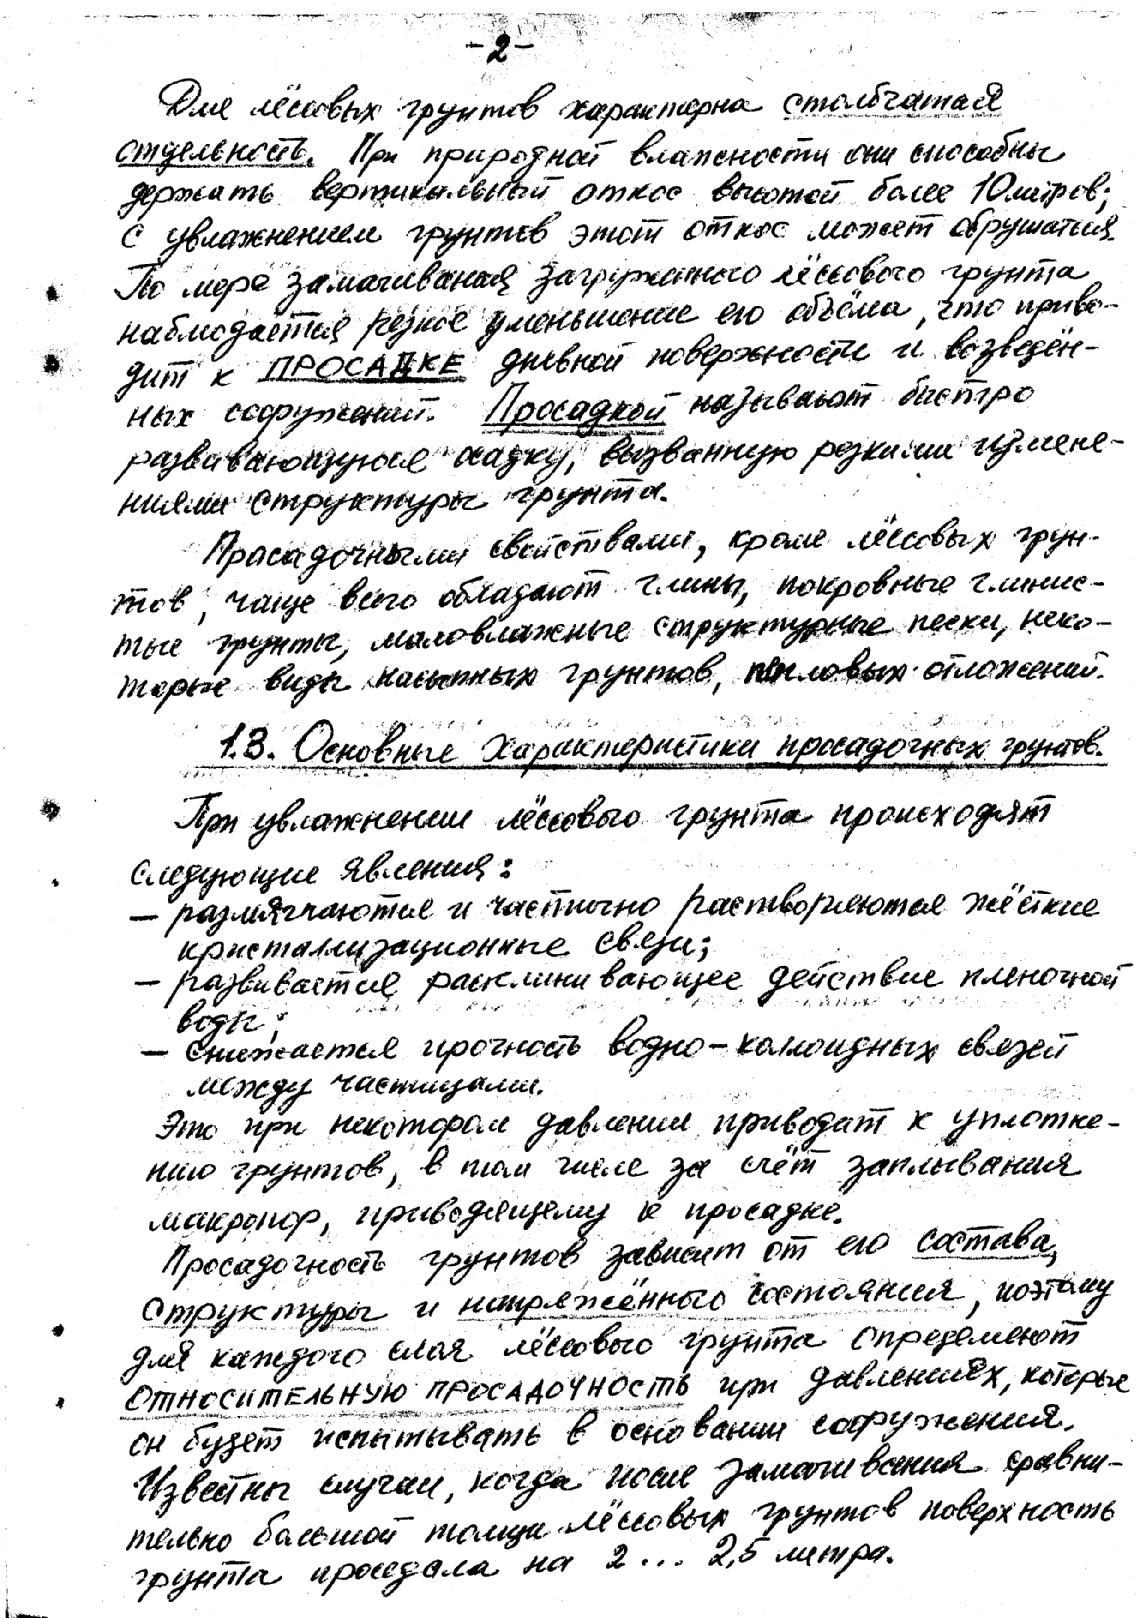 -2-
Для лёссовых грунтов характерна столбчатая
отдельность. При природной влажности они способны
держать вертикальный откос высотой более 10 метров;
с увлажнением грунтов этот откос может обрушаться.
По мере замачивания загружаного лёссового грунта
наблюдается резкое уменьшение его объёма, что приво-
дит к ПРОСАДКЕ дневной поверхности и возведён-
ных сооружений. Просадкой называют быстро
развивающуюся осадку, вызванную резкими измене-
ниями структуры грунта.
Просадочными свойствами, кроме лёссовых грун-
тов, чаще всего обладают глины, покровные глинис-
тые грунты, маловлажные структурные пески, неко-
торые виды насыпных грунтов, пепловых отложений.
1.3. Основные характеристики просадочных грунтов.
При увлажнении лёссового грунта происходят
следующие явления:
— размягчаются и частично растворяются жёсткие
кристаллизационные связи;
— развивается расклинивающее действие пленочной
воды;
— снижается прочность водно-коллоидных связей
между частицами.
Это при некотором давлении приводит к уплотне-
нию грунтов, в том числе за счёт заплывания
макропор, приводящему к просадке.
Просадочность грунтов зависит от его состава,
структуры и напряжённого состояния, поэтому
для каждого слоя лёссового грунта определяют
ОТНОСИТЕЛЬНУЮ ПРОСАДОЧНОСТЬ при давлениях, которые
он будет испытывать в основании сооружения.
Известны случаи, когда после замачивания сравни-
тельно большой толщи лёссовых грунтов поверхность
грунта проседала на 2 ... 2,5 метра.